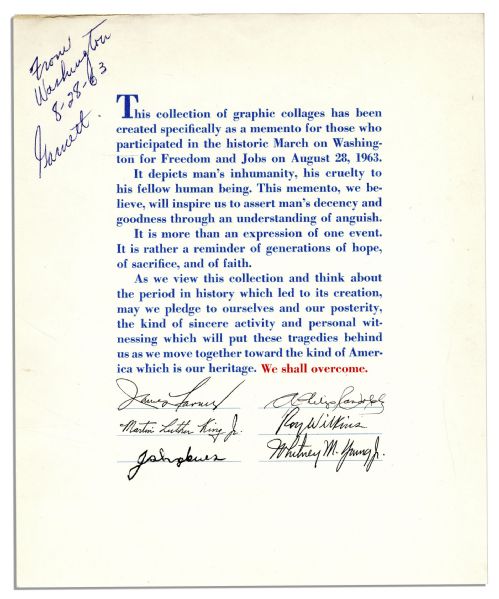 From
Washington
8-28-63
Garnett.
This collection of graphic collages has been
created specifically as a memento for those who
participated in the historic March on Washing-
ton for Freedom and Jobs on August 28, 1963.
It depicts man's inhumanity, his cruelty to
his fellow human being. This memento, we be-
lieve, will inspire us to assert man's decency and
goodness through an understanding of anguish.
It is more than an expression of one event.
It is rather a reminder of generations of hope,
of sacrifice, and of faith.
As we view this collection and think about
the period in history which led to its creation,
may we pledge to ourselves and our posterity,
the kind of sincere activity and personal wit-
nessing which will put these tragedies behind
us as we move together toward the kind of Amer-
ica which is our heritage. We shall overcome.
James Farmer A Philip Randolph
Martin Luther King Jr. Roy Wilkins
John Lewis Whitney M. Young Jr.